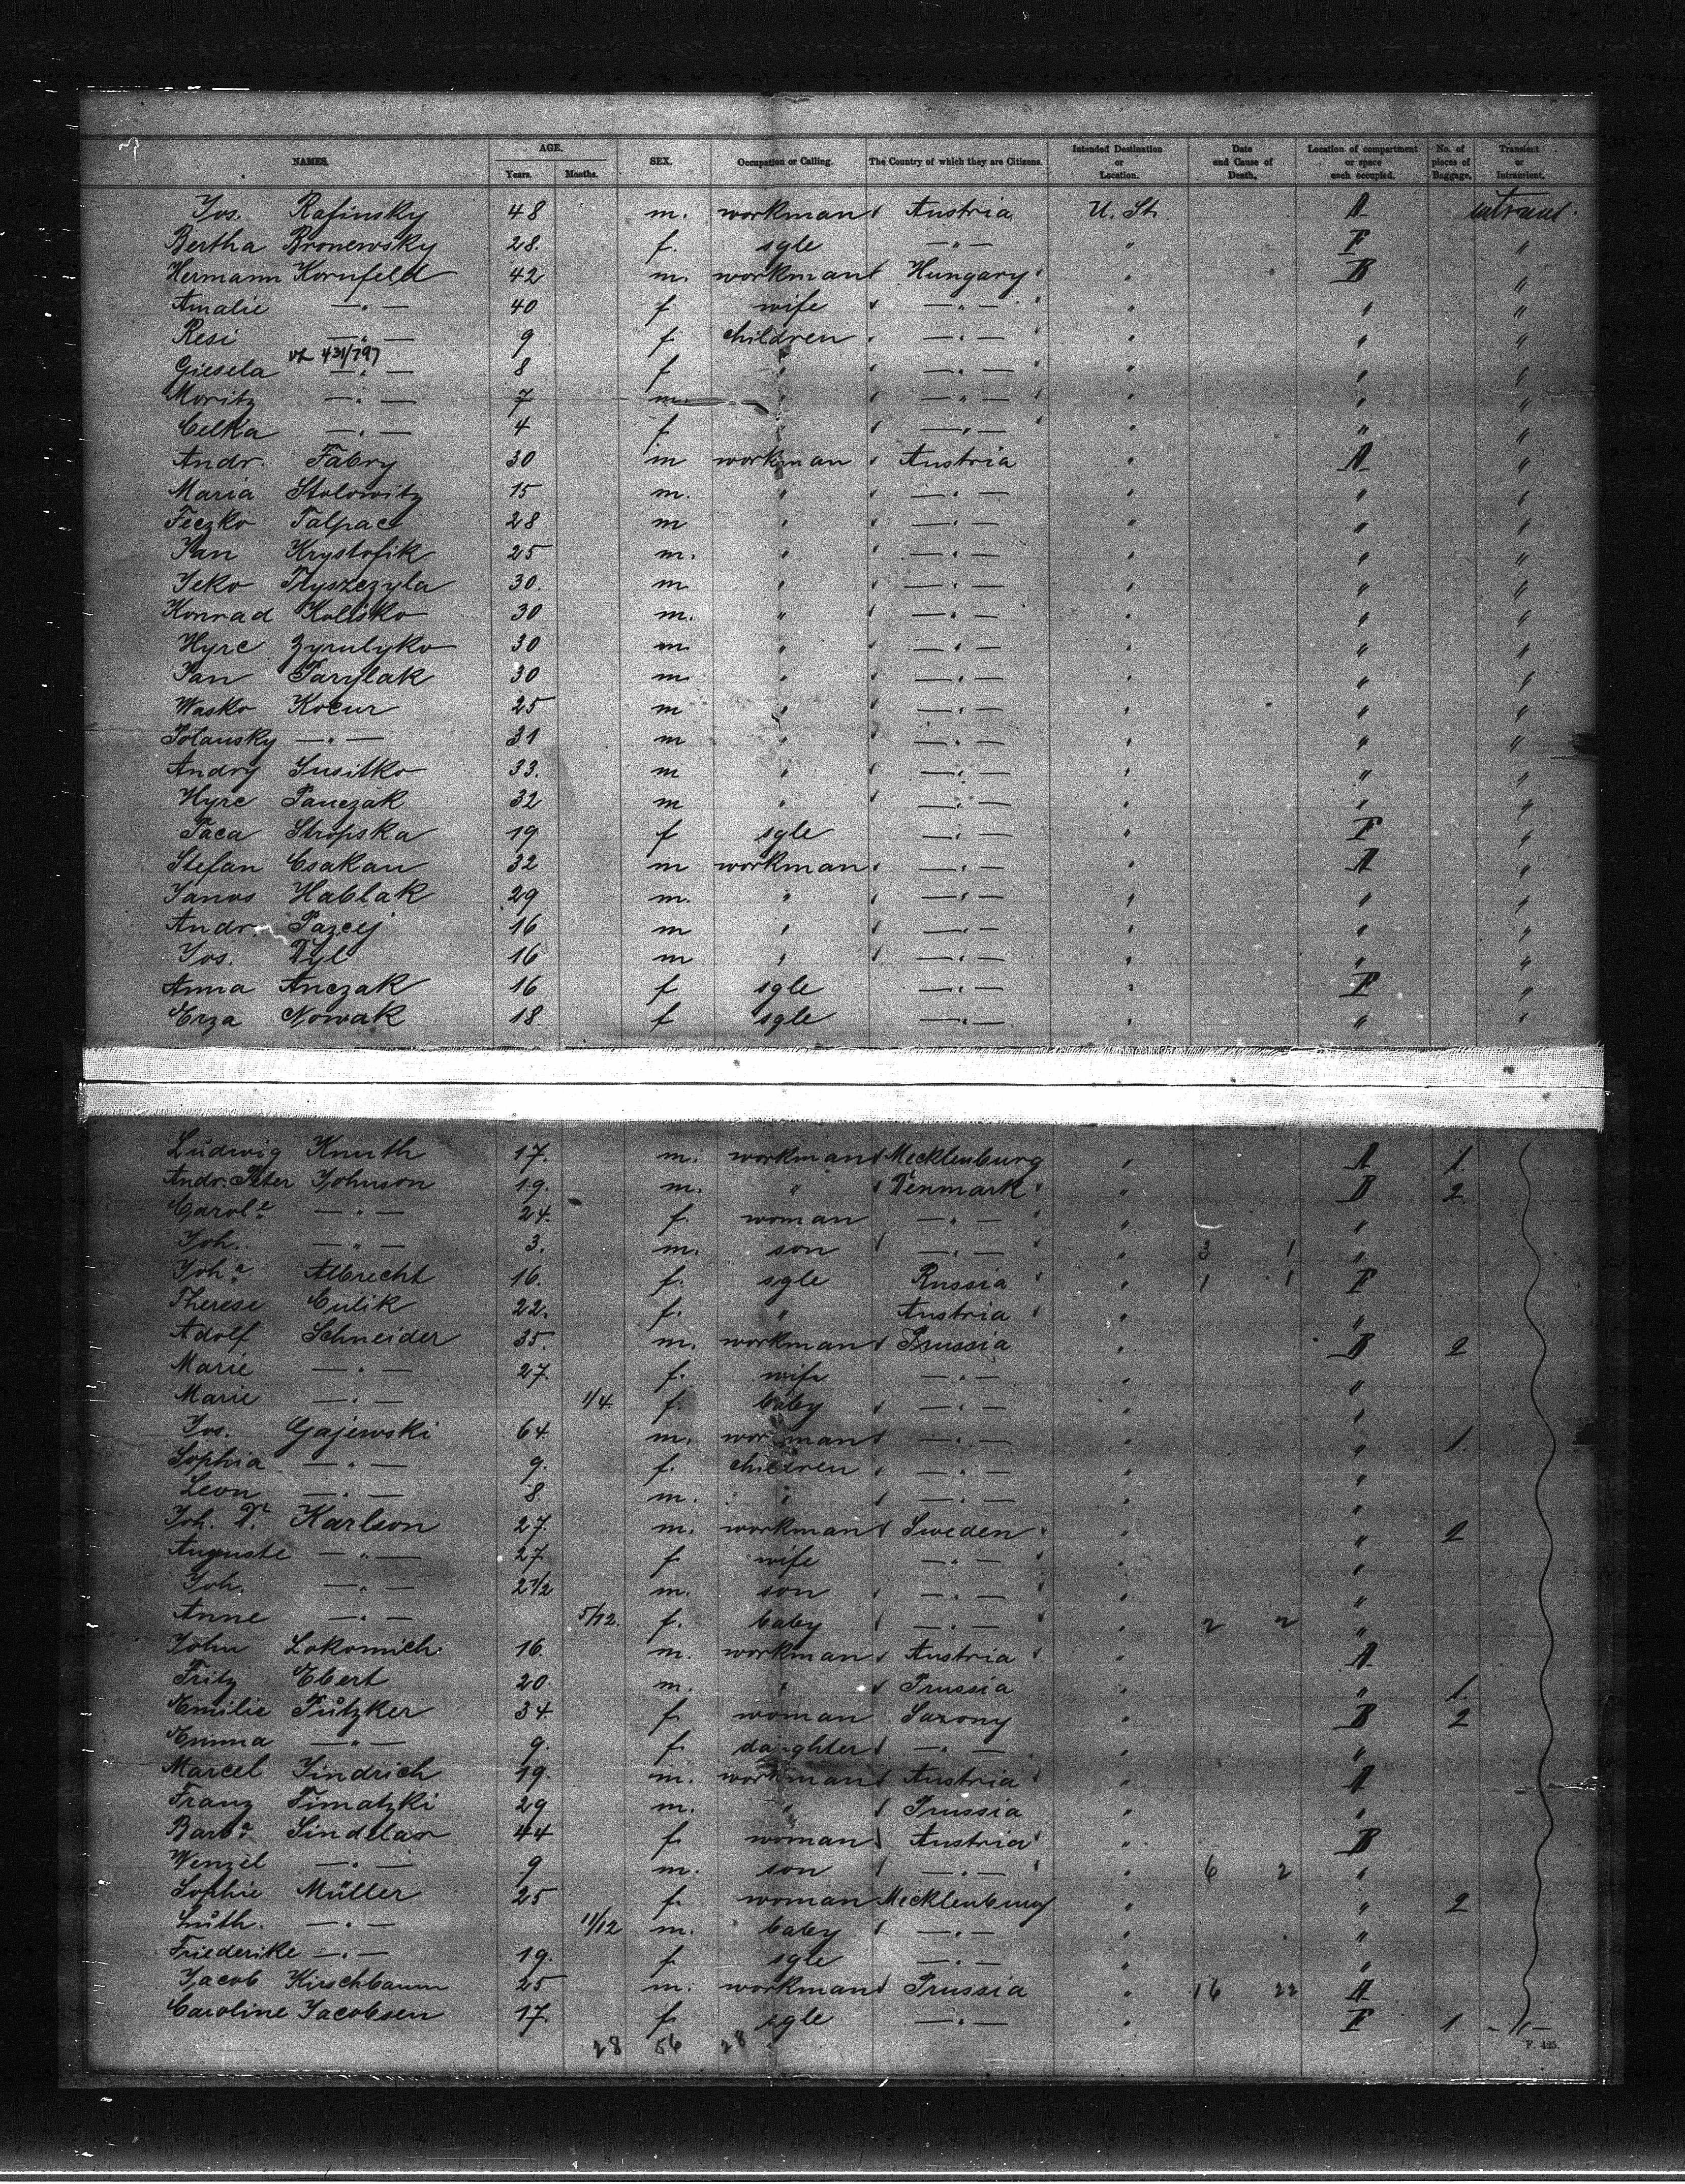 NAMES. AGE. Years. Months. SEX. Occupation or Calling. The Country of which they are Citizens. Intended Destination or Location. Date and Cause of Death. Location of compartment or space each occupied. No. of pieces of Baggage. Transient or Intransient.
Jos. Rafinsky 48 m. workman Austria U. St. A intrans.
Bertha Bronewsky 28. f. sgle —"— " F "
Hermann Kornfeld 42 m. workman Hungary " B "
Amalie —"— 40 f wife —"— " " "
Resi —"— 9 f children —"— " " "
vl 431/797
Giesela —"— 8 f " —"— " " "
Moritz —"— 7 m. " —"— " " "
Celka —"— 4 f " —"— " " "
Andr. Fabry 30 m workman Austria " A "
Maria Stolowitz 15 m. " —"— " " "
Feczko Talpac 28 m " —"— " " "
Jan Krystofik 25 m. " —"— " " "
Jeko Tlyszczyla 30. m " —"— " " "
Konrad Kolisko 30 m. " —"— " " "
Hyrc Zyrulyko 30 m " —"— " " "
Jan Parylak 30 m " —"— " " "
Wasko Kocur 25 m " —"— " " "
Polansky —"— 31 m " —"— " " "
Andry Jusitko 33. m " —"— " " "
Hyrc Panczak 32 m " —"— " " "
Paca Stropska 19 f sgle —"— " F "
Stefan Csakan 32 m workman —"— " A "
Janos Hablak 29 m. " —"— " " "
Andr. Pazcij 16 m " —"— " " "
Jos. Dyl 16 m " —"— " " "
Anna Anczak 16 f sgle —"— " F "
Erza Nowak 18. f sgle —"— " " "
Ludwig Knuth 17. m. workman Mecklenburg " A 1.
Andr. Peter Johnson 19. m. " Denmark " B 2
Carole —"— 24. f. woman —"— " "
Joh. —"— 3. m. son —"— " 3 1 "
Joha Albrecht 16. f. sgle Russia " 1 1 F
Therese Culik 22. f. " Austria " "
Adolf Schneider 35. m. workman Prussia " B 2
Marie —"— 27. f. wife —"— " "
Marie —"— 1/4. f. baby —"— " "
Jos. Gajewski 64. m. workman —"— " " 1.
Sophia —"— 9. f. children —"— " "
Leon —"— 8. m. " —"— " "
Joh. D. Karlson 27. m. workman Sweden " " 2
Auguste —"— 27. f wife —"— " "
Joh. —"— 2 1/2 m. son —"— " "
Anne —"— 5/12. f. baby —"— " 2 2 "
John Lokomich. 16. m. workman Austria " A
Fritz Ebert 20. m. " Prussia " " 1.
Emilie Pützker 34. f. woman Saxony " B 2
Emma —"— 9. f. daughter —"— " "
Marcel Jindrich 19. m. workman Austria " A
Franz Timatzki 29 m. " Prussia " "
Barba Sindelar 44 f. woman Austria " B
Wenzel —"— 9 m. son —"— " 6 2 "
Sophie Müller 25 f. woman Mecklenburg " " 2
Luth. —"— 11/12 m. baby —"— " "
Friederike —"— 19. f sgle —"— " "
Jacob Kirschbaum 25 m. workman Prussia " 16 22 A
Caroline Jacobsen 17. f sgle —"— " F 1. —"—
28 56 28
F. 425.